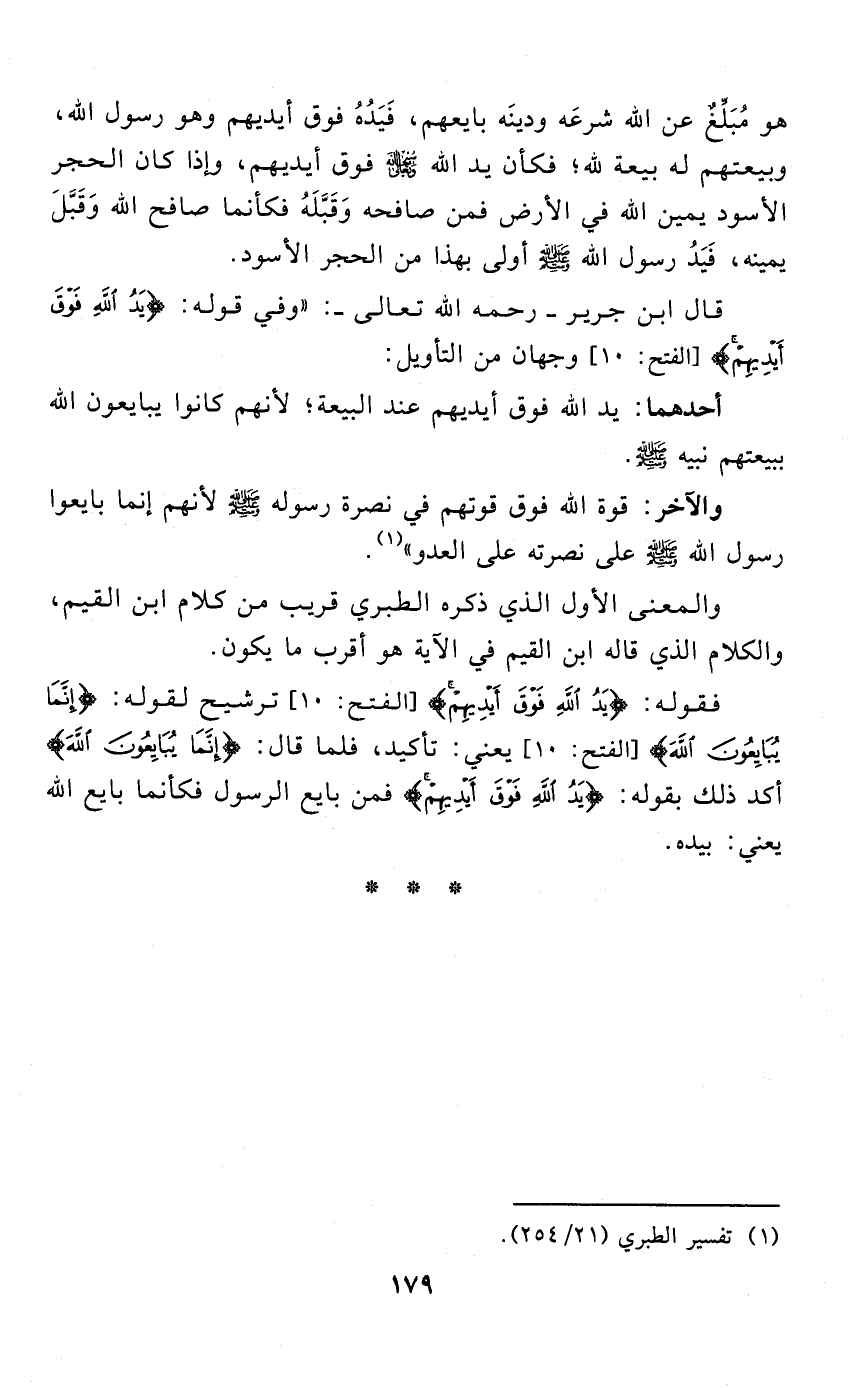 هو مُبَلِّغٌ عن الله شرعَه ودينَه بايعهم، فَيَدُهُ فوق أيديهم وهو رسول الله،
وبيعتهم له بيعة لله؛ فكأن يد الله ﷻ فوق أيديهم، وإذا كان الحجر
الأسود يمين الله في الأرض فمن صافحه وَقَبَّلَهُ فكأنما صافح الله وَقَبَّلَ
يمينه، فَيَدُ رسول الله ﷺ أولى بهذا من الحجر الأسود.
قال ابن جرير ـ رحمه الله تعالى ـ: «وفي قوله: ﴿يَدُ ٱللَّهِ فَوْقَ
أَيْدِيهِمْۚ﴾ [الفتح: ١٠] وجهان من التأويل:
أحدهما: يد الله فوق أيديهم عند البيعة؛ لأنهم كانوا يبايعون الله
ببيعتهم نبيه ﷺ.
والآخر: قوة الله فوق قوتهم في نصرة رسوله ﷺ لأنهم إنما بايعوا
رسول الله ﷺ على نصرته على العدو»(١).
والمعنى الأول الذي ذكره الطبري قريب من كلام ابن القيم،
والكلام الذي قاله ابن القيم في الآية هو أقرب ما يكون.
فقوله: ﴿يَدُ ٱللَّهِ فَوْقَ أَيْدِيهِمْۚ﴾ [الفتح: ١٠] ترشيح لقوله: ﴿إِنَّمَا
يُبَايِعُونَ ٱللَّهَ﴾ [الفتح: ١٠] يعني: تأكيد، فلما قال: ﴿إِنَّمَا يُبَايِعُونَ ٱللَّهَ﴾
أكد ذلك بقوله: ﴿يَدُ ٱللَّهِ فَوْقَ أَيْدِيهِمْۚ﴾ فمن بايع الرسول فكأنما بايع الله
يعني: بيده.
* * *
(١) تفسير الطبري (٢١/ ٢٥٤).
١٧٩